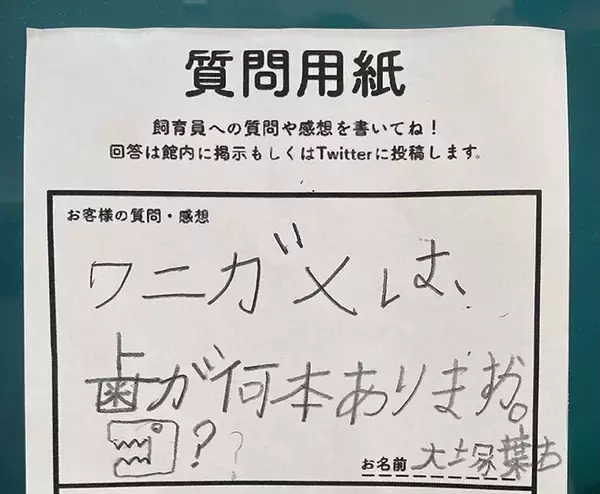 質問用紙
飼育員への質問や感想を書いてね！
回答は館内に掲示もしくはTwitterに投稿します。
お客様の質問・感想
ワニガメは、
歯が何本ありますか。
??
お名前 大塚葉